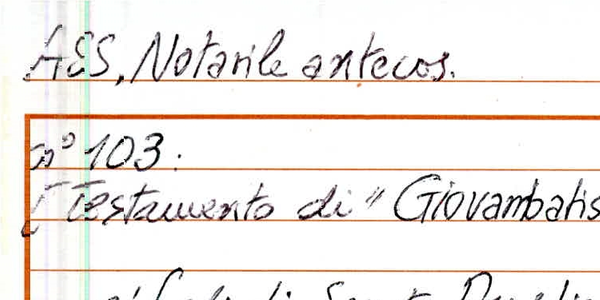 ASS, Notarile antecos.
n° 103:
[Testamento di "Giovambatis